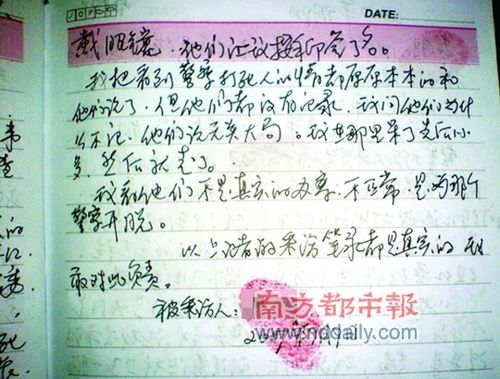 DATE:
他们让我按印签了名。
我把看到警察打死人的情都原原本本的和
他们说了,但他们都没有记录,我问他们为什
么不记,他们说无关大局。我在那里呆了
然后就走了。
我看他们不是真实的办案,不正常,是为那个
警察开脱。
以上记者的采访笔录都是真实的 我
敢对此负责。
被采访人:
南方都市報
www.nddaily.com